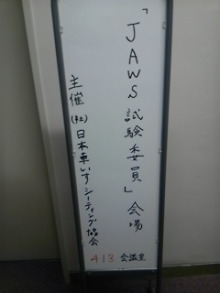 「JAWS試験委員」会場
主催 (社)日本車いすシーティング協会
413 会議室